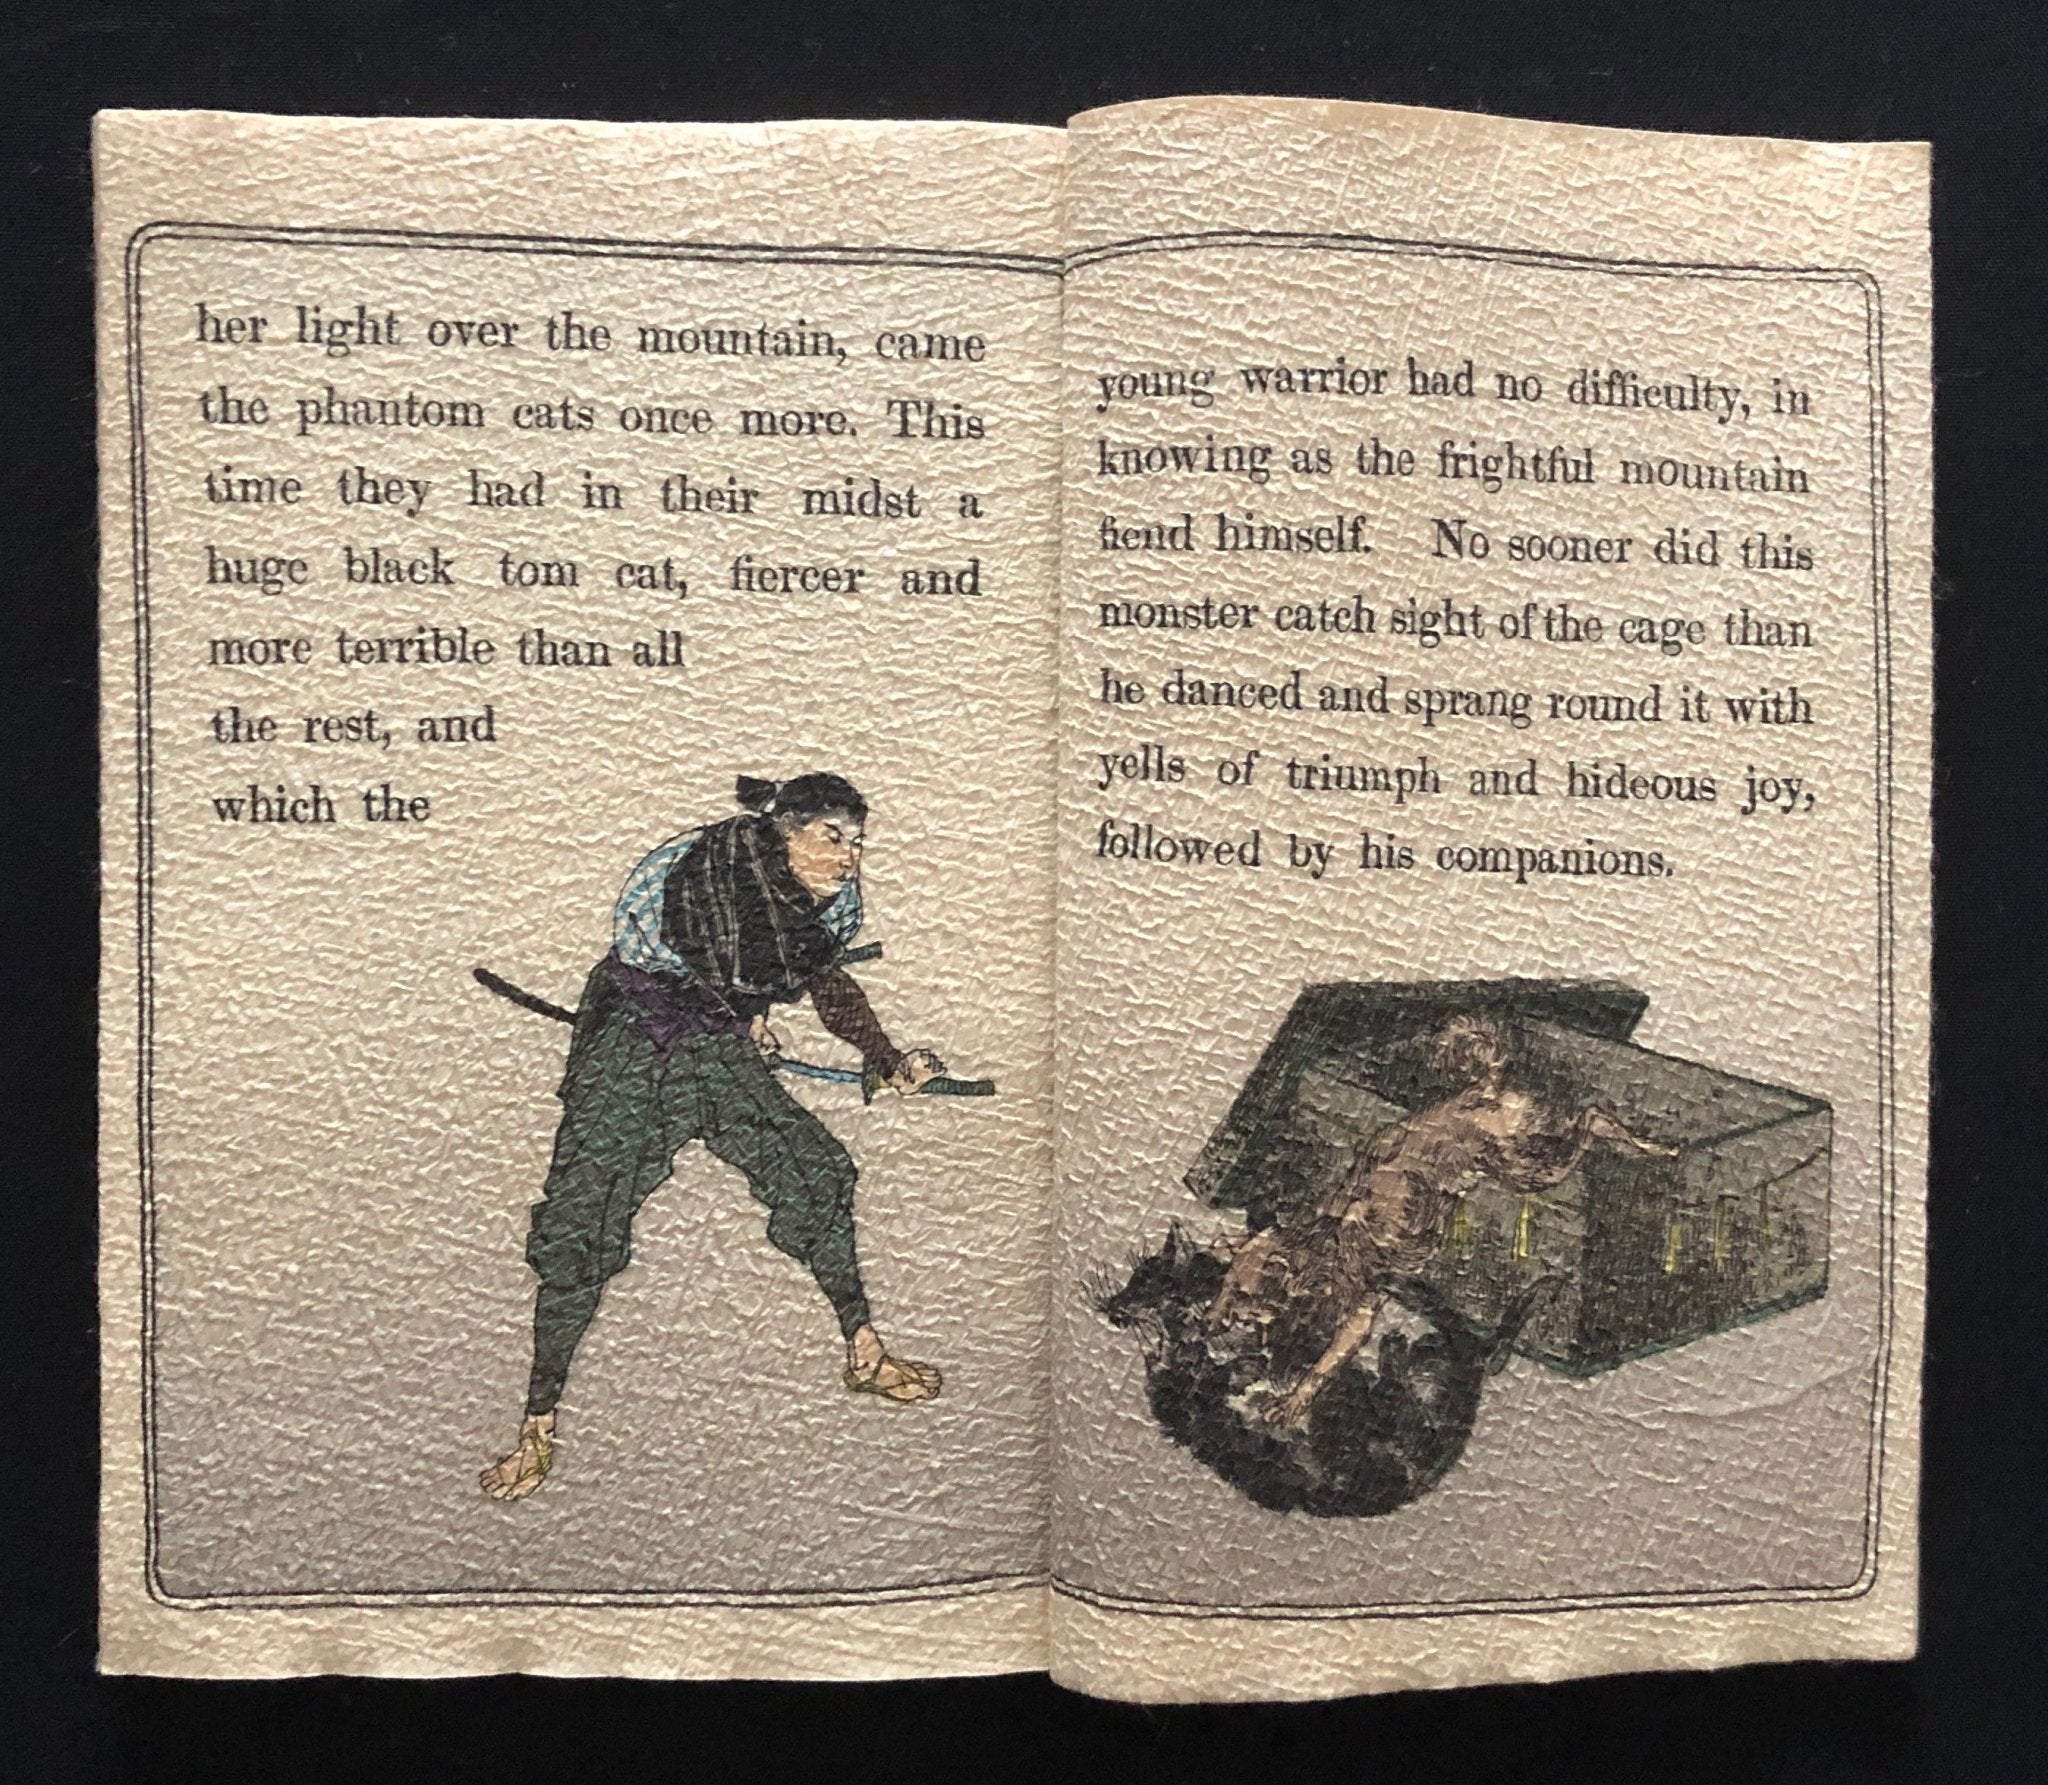 her light over the mountain, came
the phantom cats once more. This
time they had in their midst a
huge black tom cat, fiercer and
more terrible than all
the rest, and
which the
young warrior had no difficulty, in
knowing as the frightful mountain
fiend himself. No sooner did this
monster catch sight of the cage than
he danced and sprang round it with
yells of triumph and hideous joy,
followed by his companions.